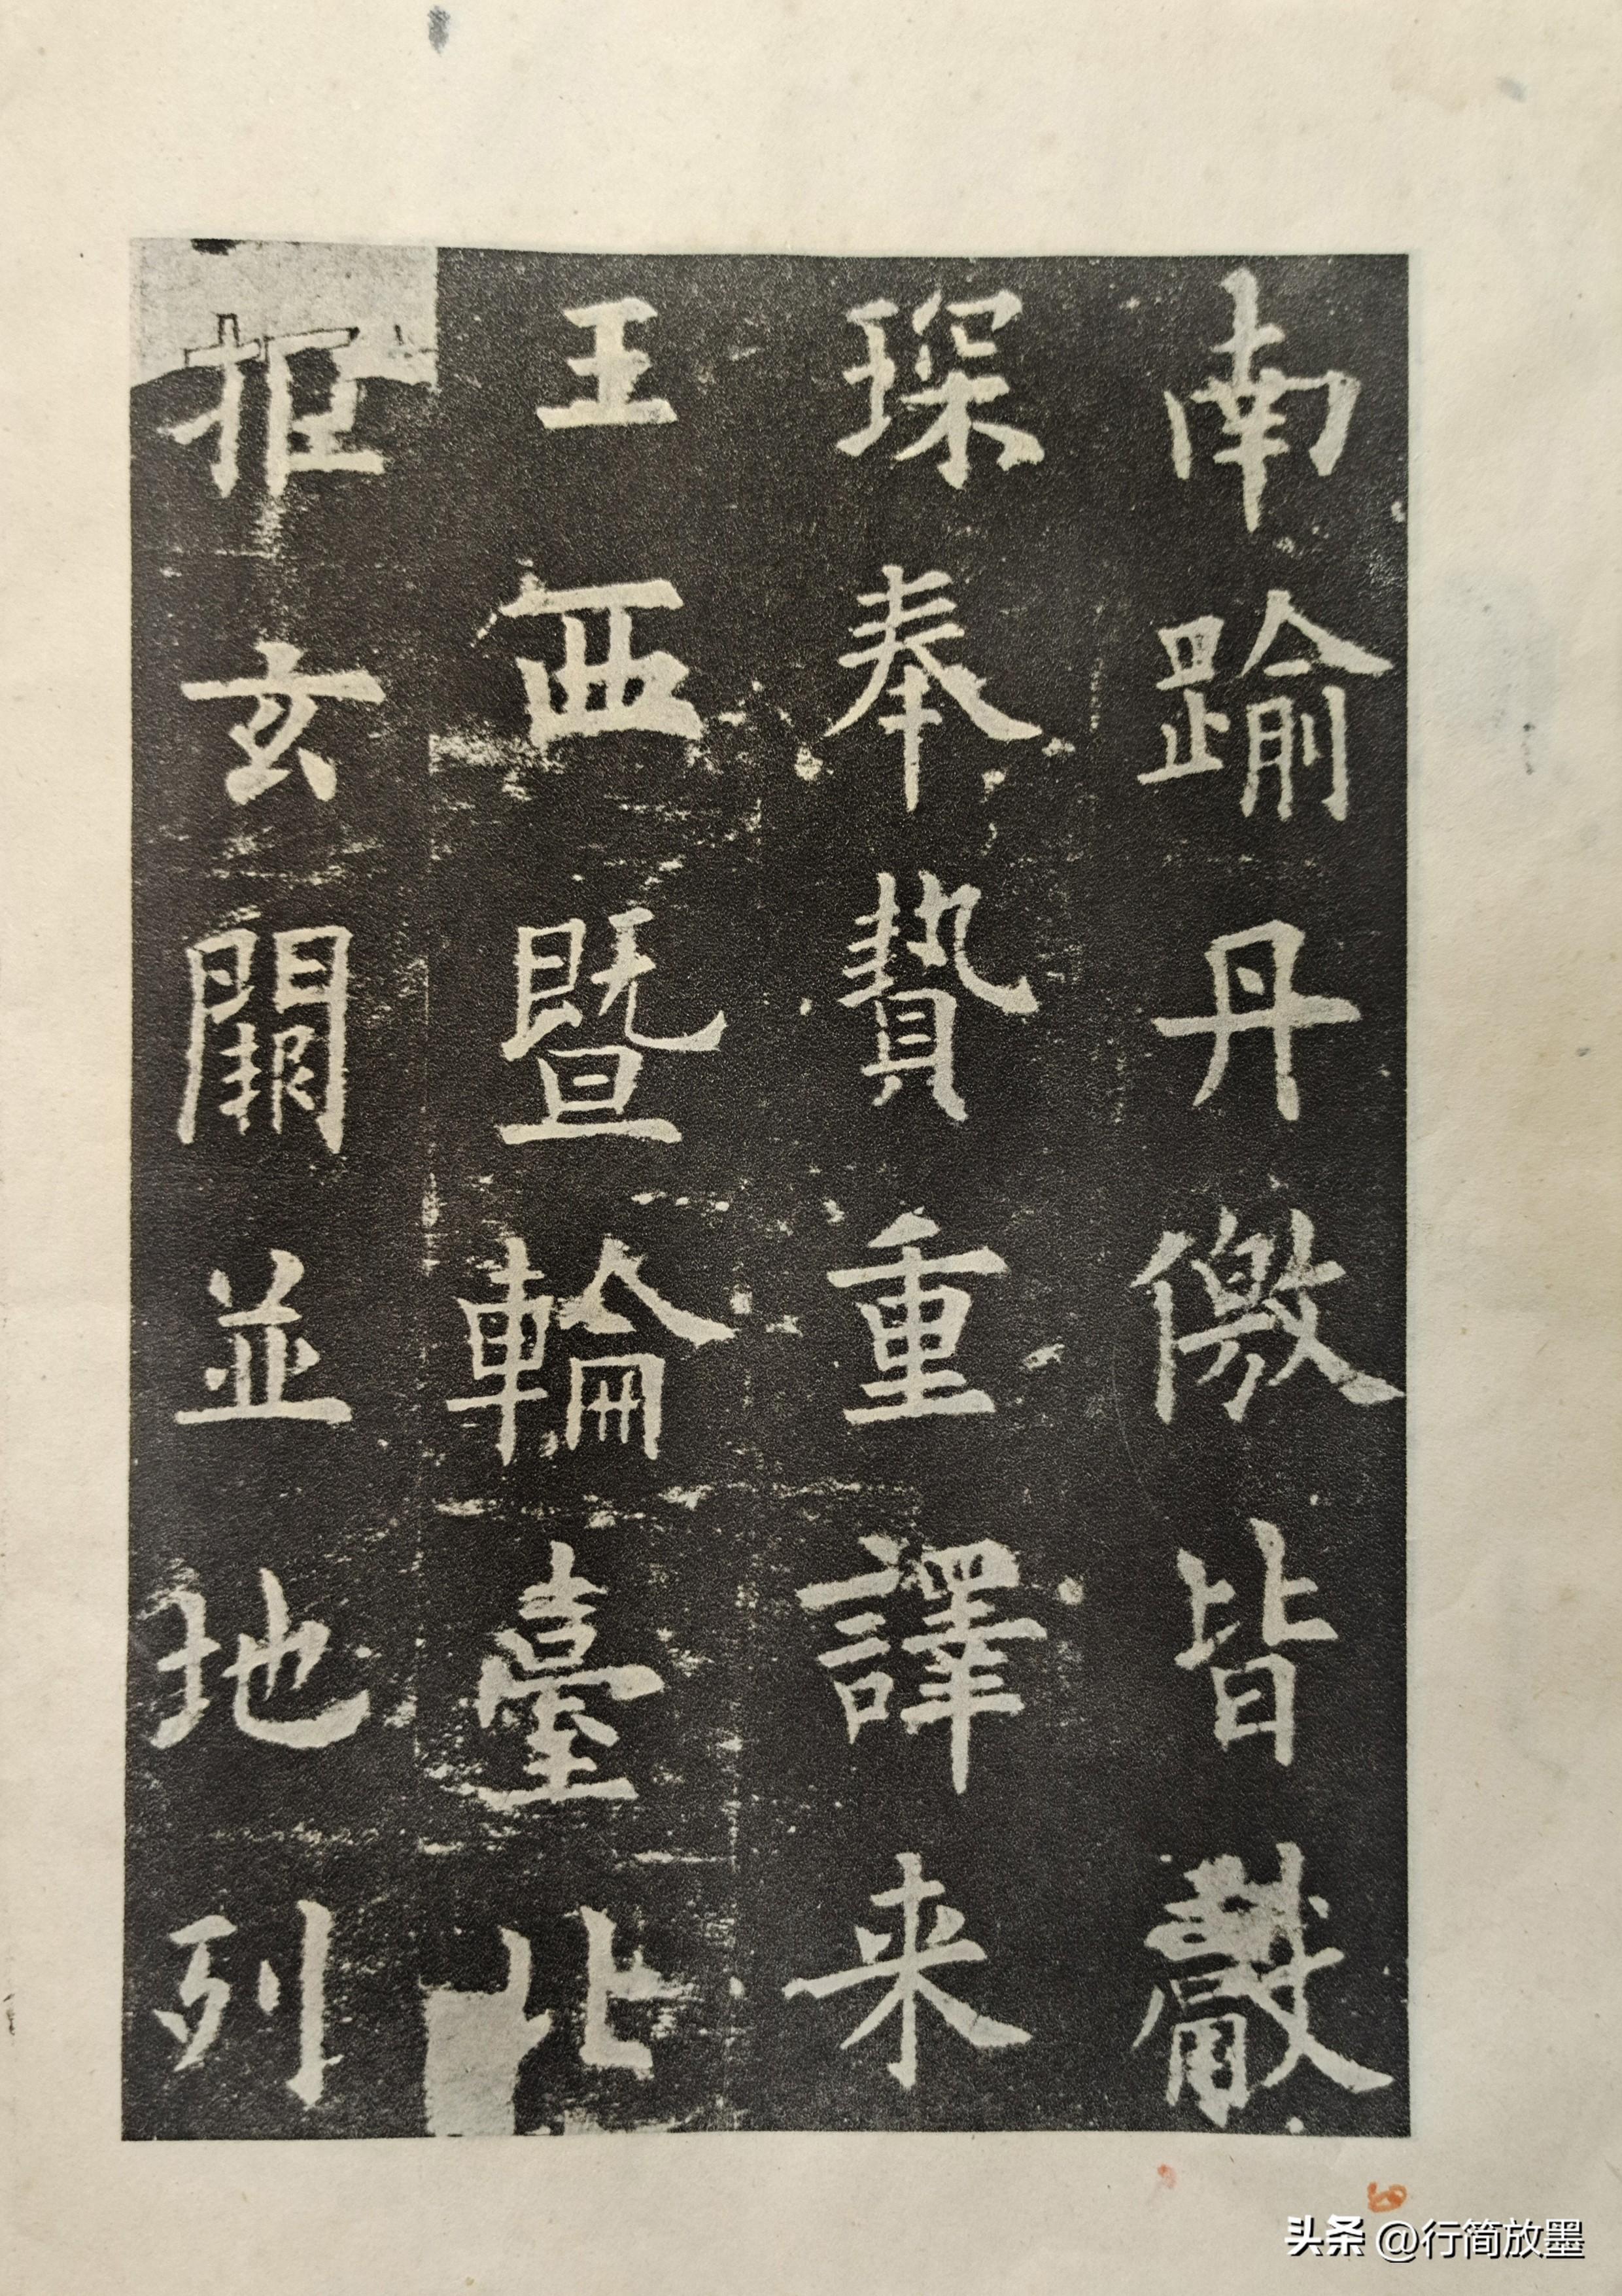 南踰丹徼皆獻
琛奉贄重譯来
王西暨輪臺北
拒玄闕並地列
头条 @行简放墨